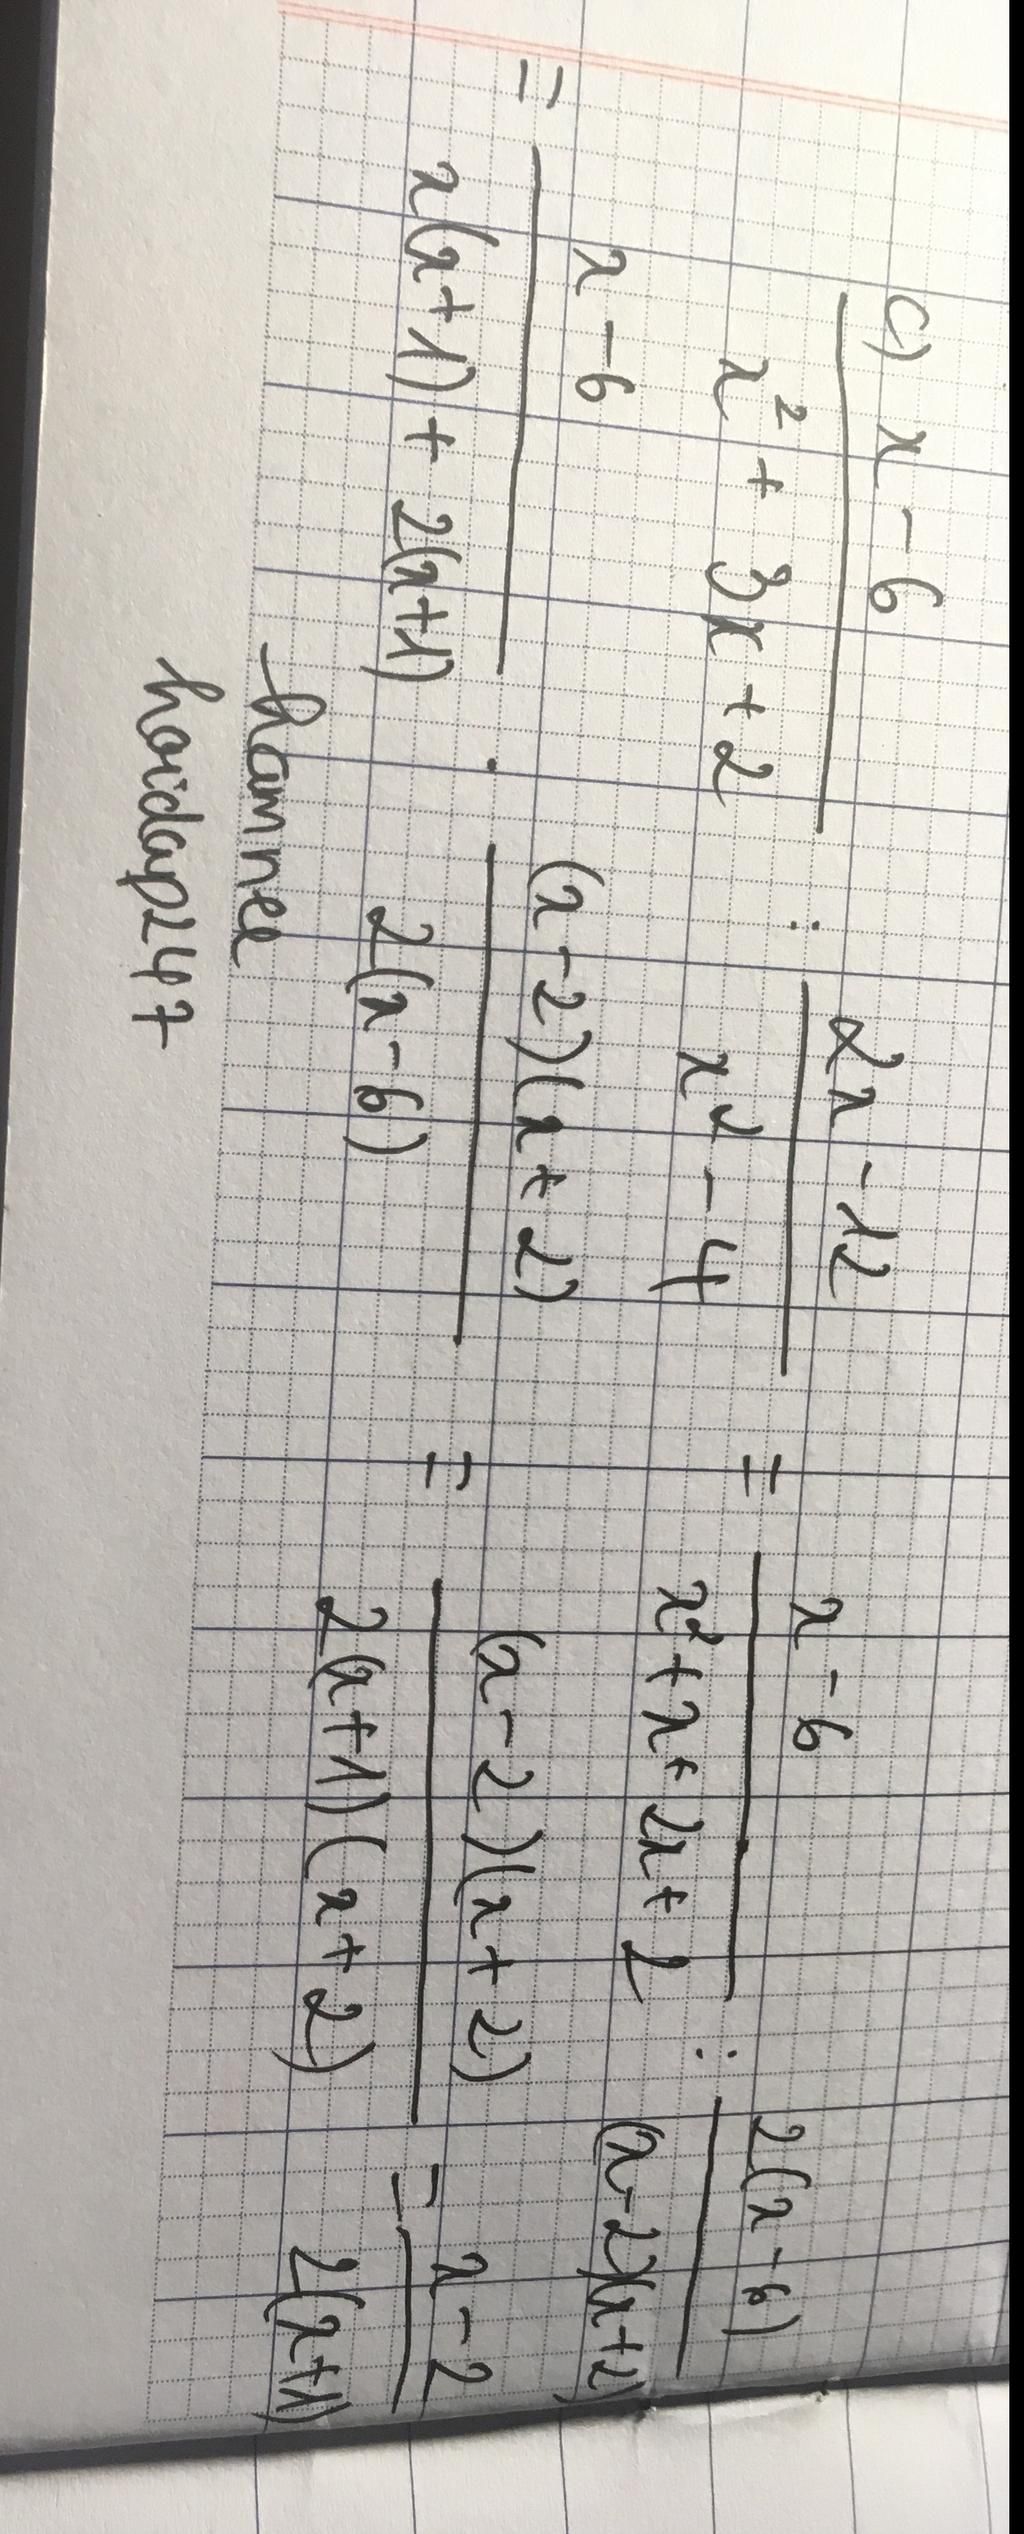 c) \frac{x-6}{x^2+3x+2} : \frac{2x-12}{x^2-4} = \frac{x-6}{x^2+x+2x+2} : \frac{2(x-6)}{(x-2)(x+2)}
= \frac{x-6}{x(x+1)+2(x+1)} . \frac{(x-2)(x+2)}{2(x-6)} = \frac{(x-2)(x+2)}{2(x+1)(x+2)} = \frac{x-2}{2(x+1)}
hamnee
hoidap247